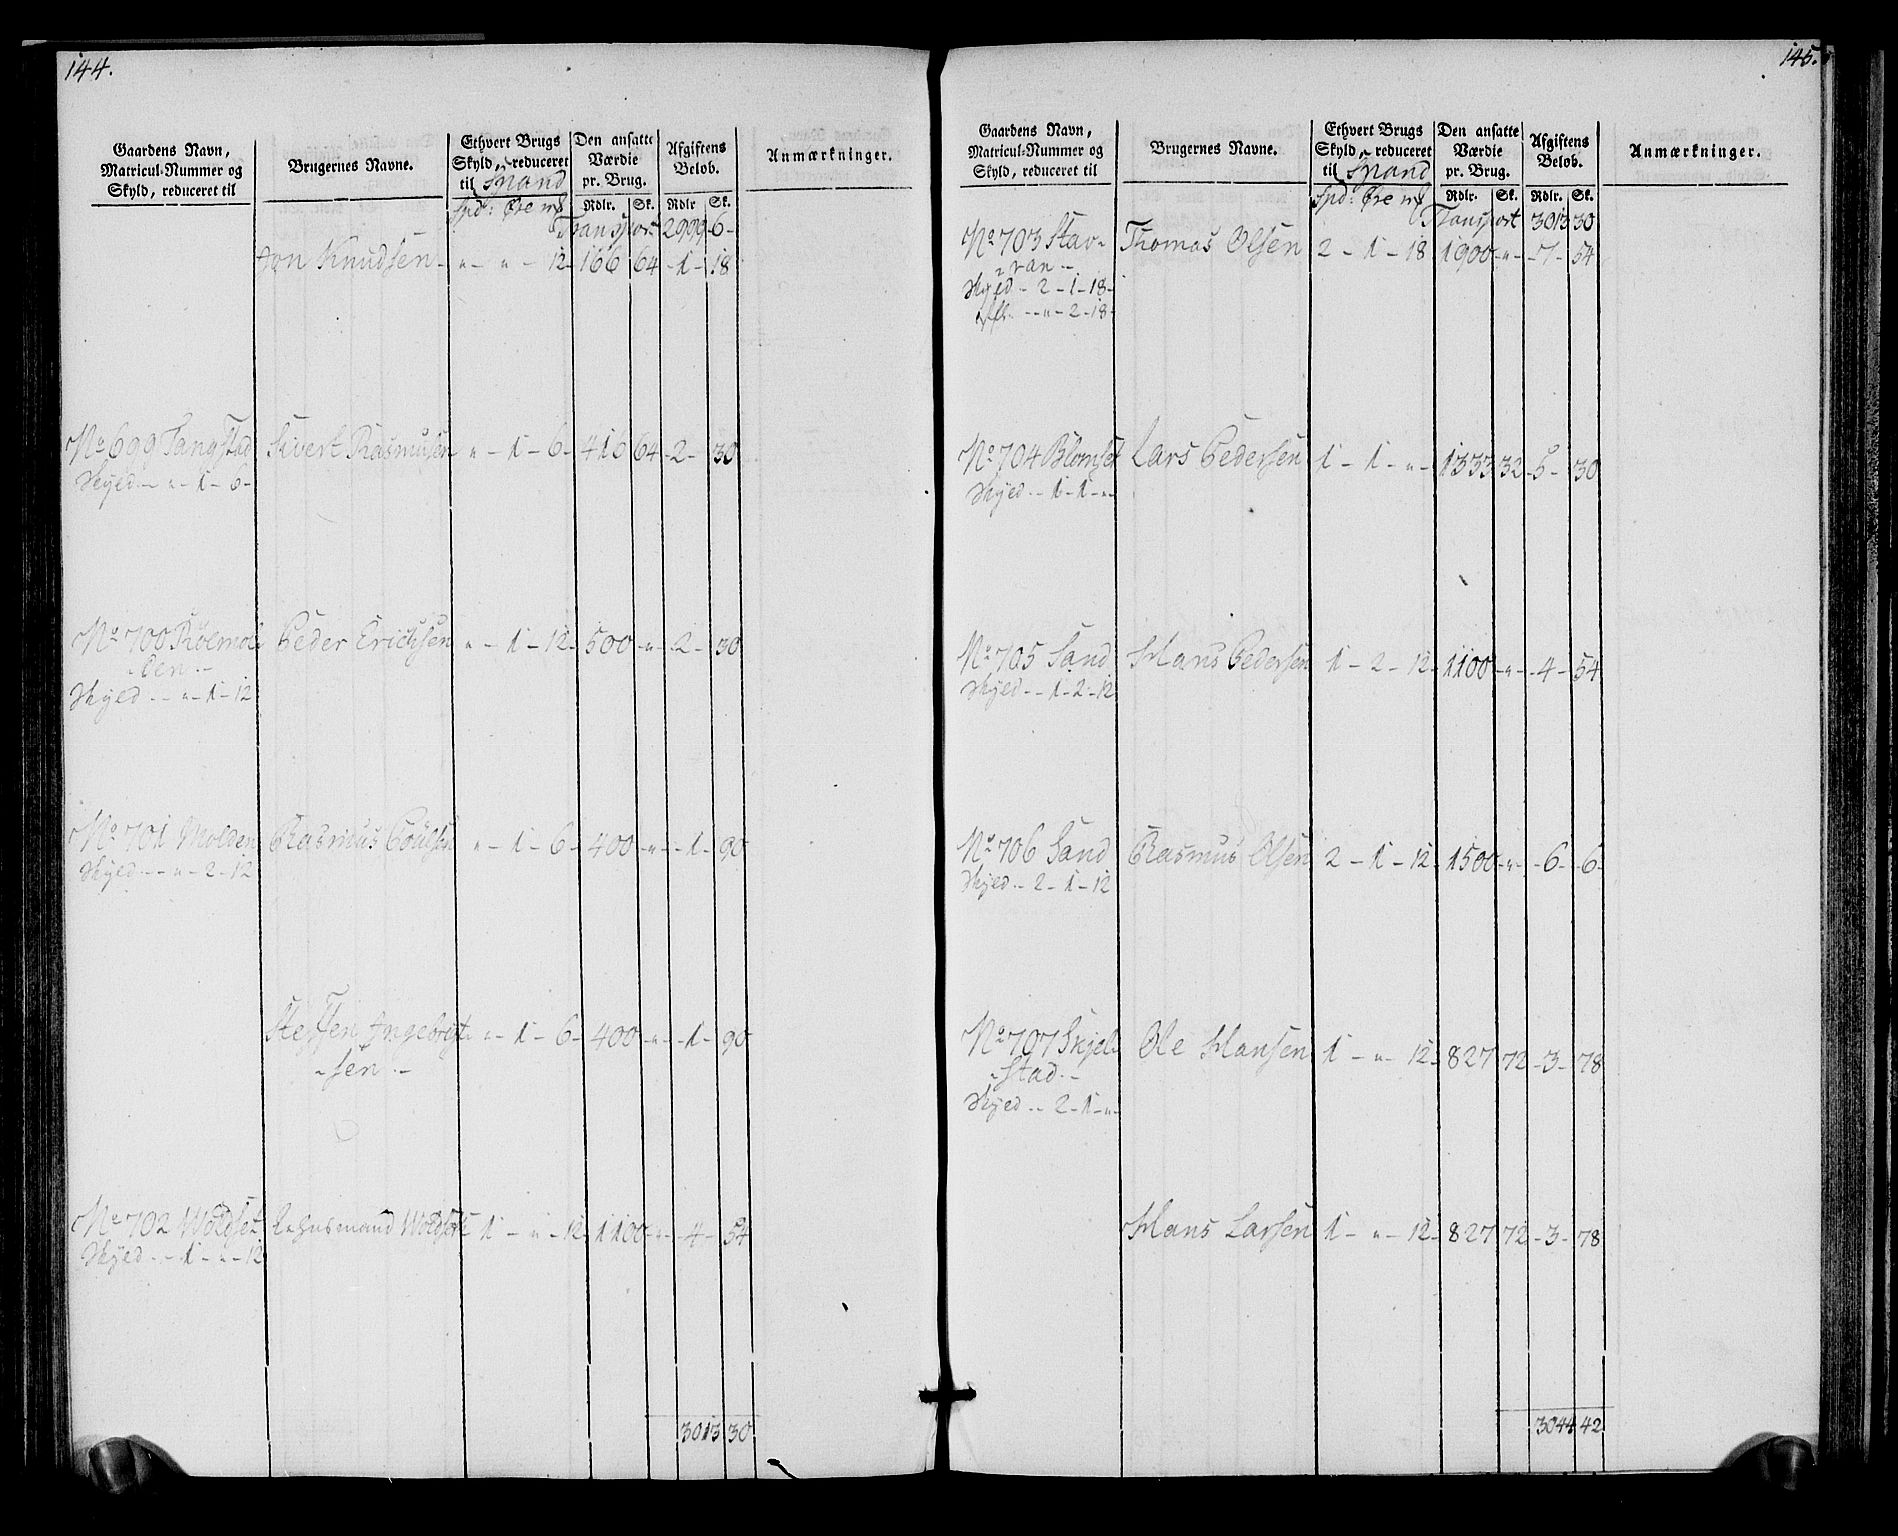 144.
Gaardens Navn,
Matricul-Nummer og
Skyld, reduceret til
Brugernes Navne.
Ethvert Brugs
Skyld, reduceret
til Spand
Den ansatte
Værdie
pr. Brug.
Afgiftens
Beløb.
Anmærkninger.
Spd: Øre mg Rdlr. Sk. Rdlr Sk.
Transport 2999 - 6 -
Jon Knudsen - " - " - 12 - 166 64 - 1 - 18
No 699 Tangstad Sivert Rasmusen " - 1 - 6 - 416 64 - 2 - 30
Skyld - " - 1 - 6 -
No 700 Peder Erichsen " - 1 - 12 - 500 - " - 2 - 30
Skyld - - " - 1 - 12
No 701 Molden Rasmus Poulsen " - 1 - 6 - 400 - " - 1 - 90
Skyld - - " - 2 - 12
Steffen Ingebrigt " - 1 - 6 - 400 - " - 1 - 90
- sen -
No 702 Woldset Enhusmand Woldset 1 - " - 12 - 1100 - " - 4 - 54
Skyld - - 1 - " - 12
3013 30
145.
Gaardens Navn,
Matricul-Nummer og
Skyld, reduceret til
Brugernes Navne.
Ethvert Brugs
Skyld, reduceret
til Spand
Den ansatte
Værdie
pr. Brug.
Afgiftens
Beløb.
Anmærkninger.
Spd: Øre mg Rdlr. Sk. Rdlr. Sk.
Transport 3013 30
No 703 Stav- Thomas Olsen 2 - 1 - 18 1900 - " - 7 - 54
- ran -
Skyld - 2 - 1 - 18 -
- - " - 2 - 18 -
No 704 Blomset Lars Pedersen 1 - 1 - " - 1333 32 - 5 - 30
Skyld - - 1 - 1 - "
No 705 Sand Hans Pedersen 1 - 2 - 12 - 1100 - " - 4 - 54
Skyld - - 1 - 2 - 12
No 706 Sand Rasmus Olsen 2 - 1 - 12 - 1500 - " - 6 - 6 -
Skyld - - 2 - 1 - 12
No 707 Skjel- Ole Hansen 1 - " - 12 - 827 72 - 3 - 78
- stad -
Skyld - - 2 - 1 - "
Hans Larsen 1 - " - 12 - 827 72 - 3 - 78
3044 42